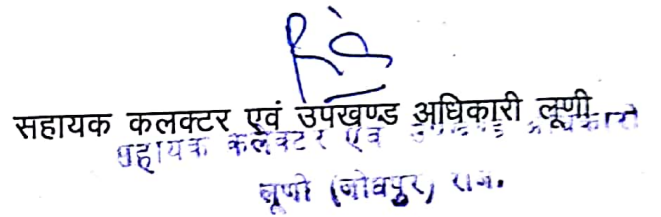 सहायक कलक्टर एवं उपखण्ड अधिकारी लूणी
सहायक कलेक्टर एवं उपखण्ड अधिकारी
लूणी (जोधपुर) राज.